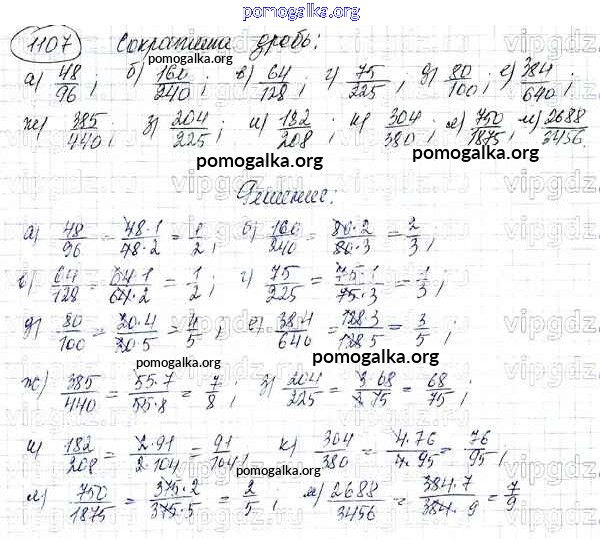 pomogalka.org
1107 Сократите дробь:
а) 48/96; б) 160/240; в) 64/128; г) 75/225; д) 80/100; е) 384/640;
ж) 385/440; з) 204/225; и) 182/208; к) 304/380; л) 750/1875; м) 2688/3456.
pomogalka.org pomogalka.org
Решение:
а) 48/96 = 48·1/48·2 = 1/2; б) 160/240 = 80·2/80·3 = 2/3;
в) 64/128 = 64·1/64·2 = 1/2; г) 75/225 = 75·1/75·3 = 1/3;
д) 80/100 = 20·4/20·5 = 4/5; е) 384/640 = 128·3/128·5 = 3/5;
pomogalka.org pomogalka.org
ж) 385/440 = 55·7/55·8 = 7/8; з) 204/225 = 3·68/3·75 = 68/75;
и) 182/208 = 2·91/2·104 = 91/104; к) 304/380 = 4·76/4·95 = 76/95;
pomogalka.org
л) 750/1875 = 375·2/375·5 = 2/5; м) 2688/3456 = 384·7/384·9 = 7/9
pomogalka.org